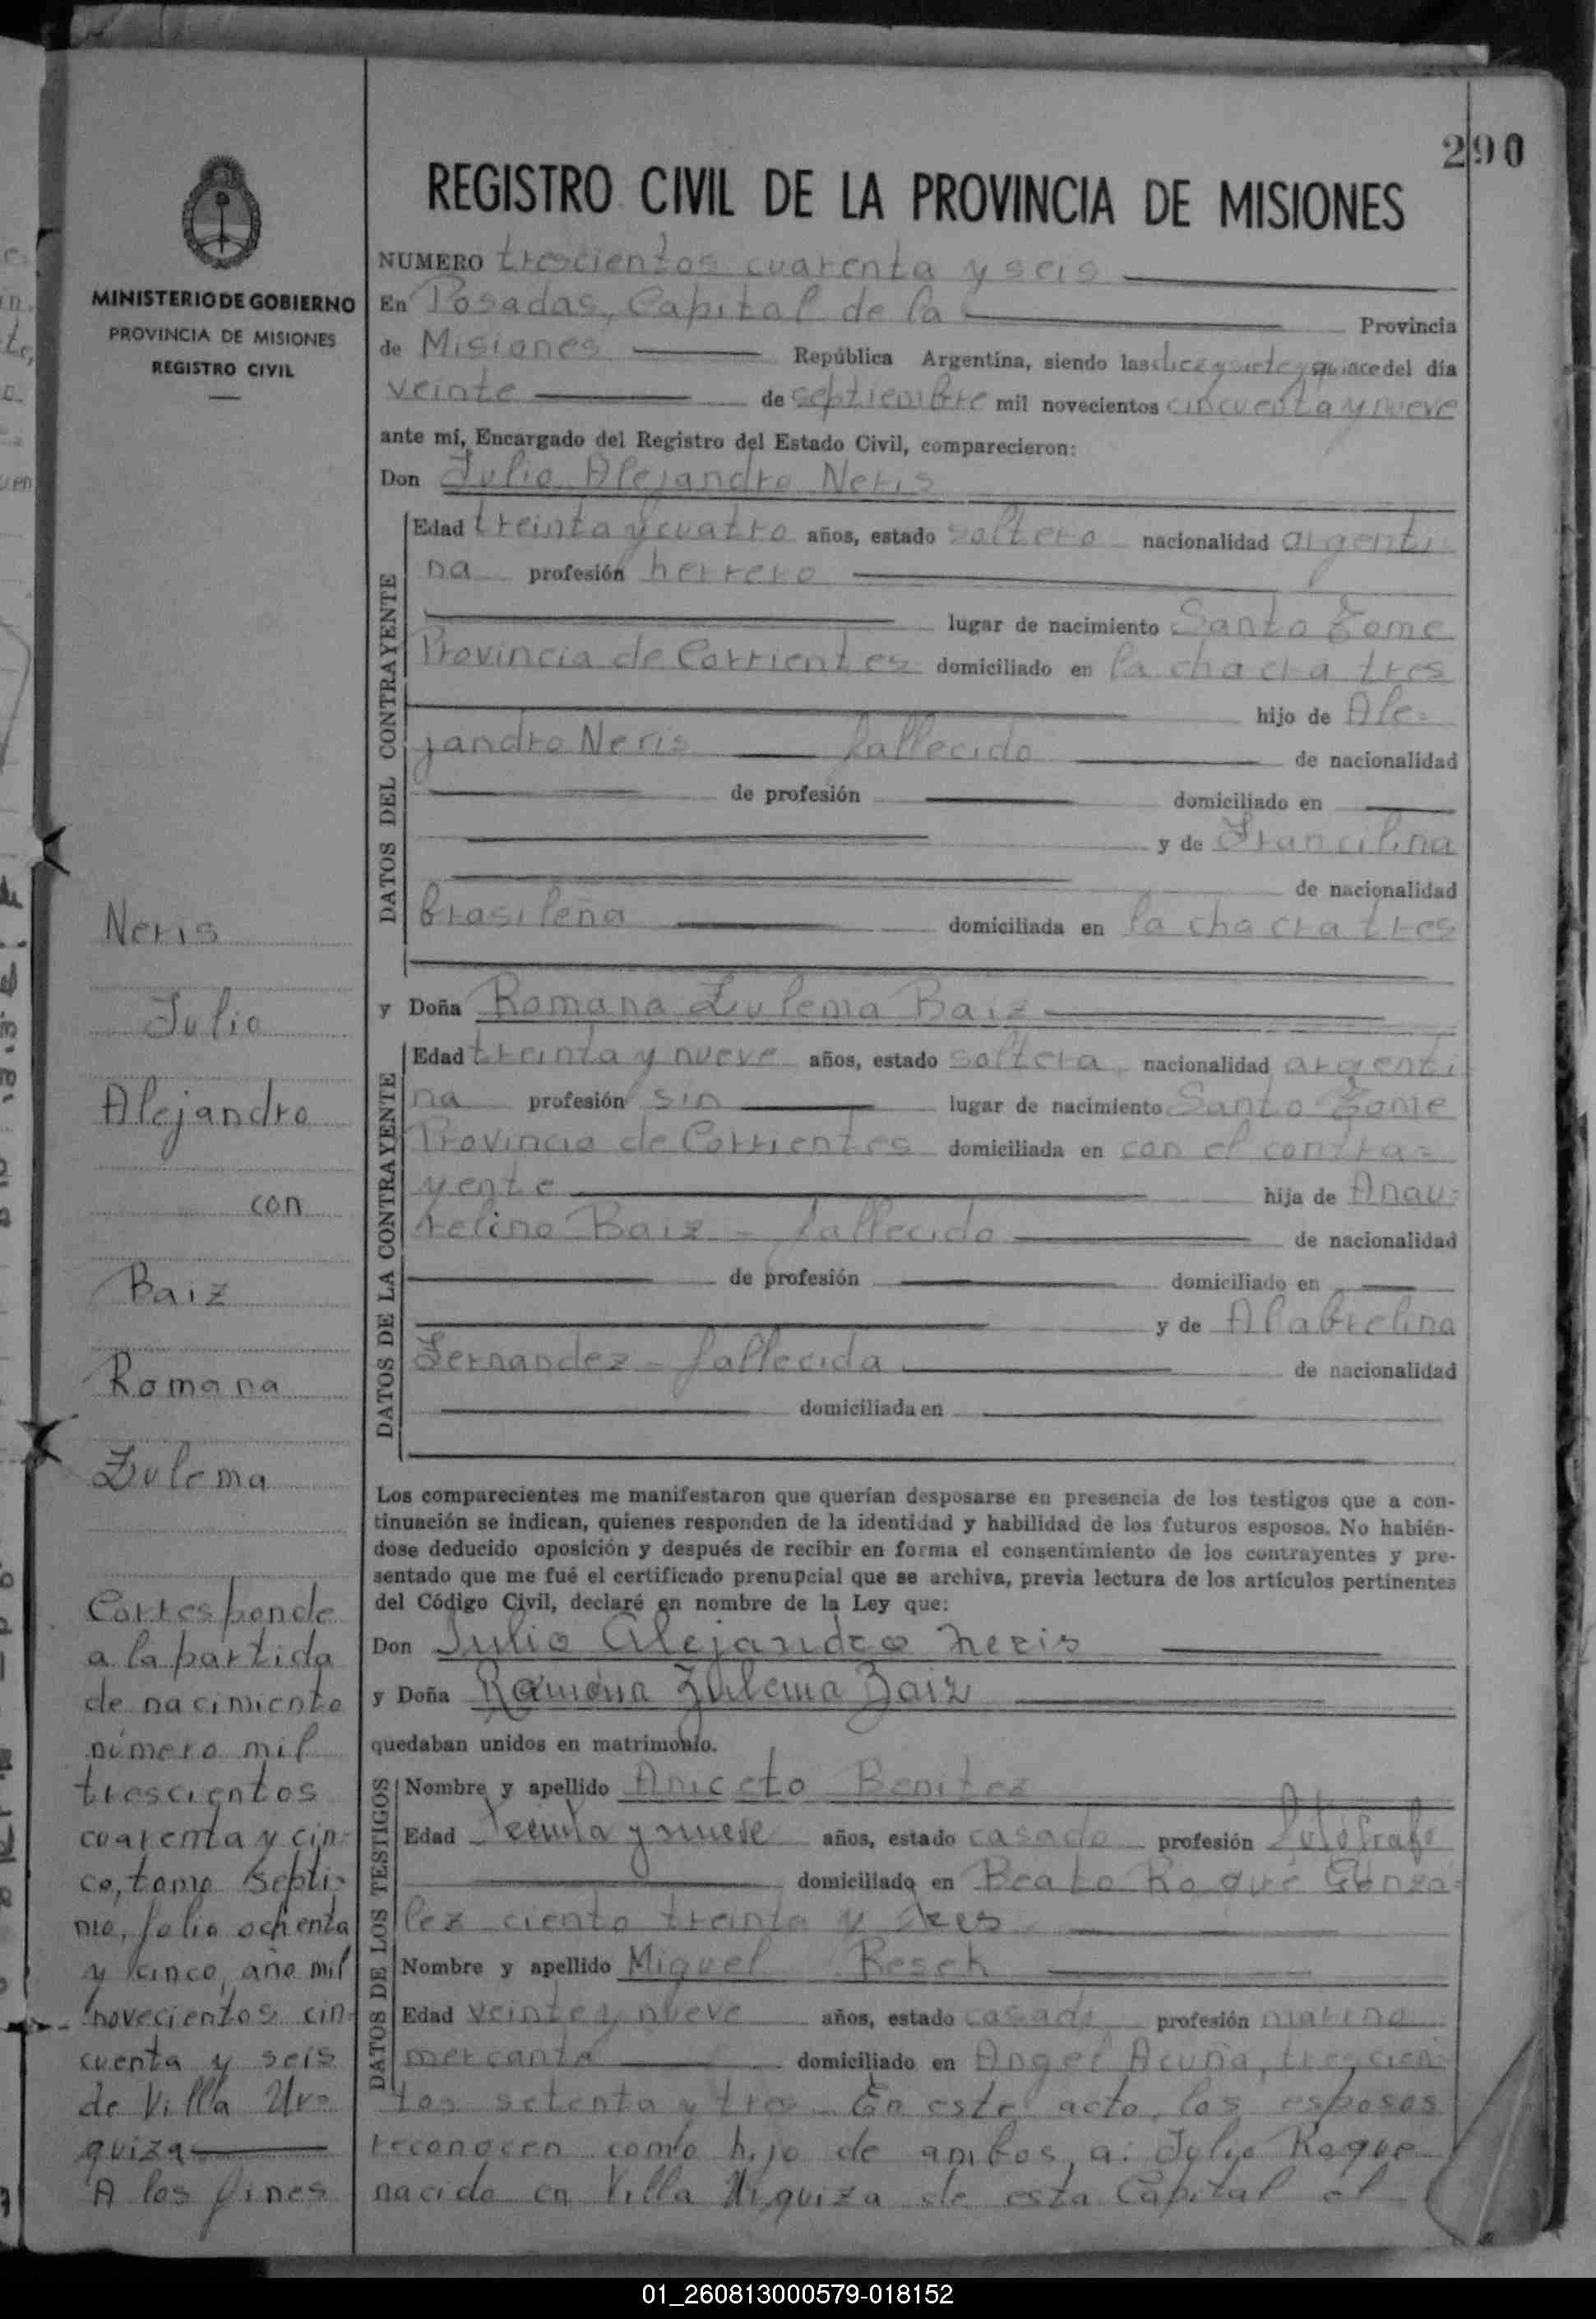 290
REGISTRO CIVIL DE LA PROVINCIA DE MISIONES
MINISTERIO DE GOBIERNO
PROVINCIA DE MISIONES
REGISTRO CIVIL
Neris
Julio
Alejandro
con
Baiz
Romana
Zulema
Corresponde
a la partida
de nacimiento
número mil
trescientos
cuarenta y cin-
co, tomo septi-
mo, folio ochenta
y cinco, año mil
novecientos cin-
cuenta y seis
de Villa Ur-
quiza
A los fines
NUMERO trescientos cuarenta y seis
En Posadas, Capital de la Provincia
de Misiones República Argentina, siendo las diez y siete y quince del día
veinte de septiembre mil novecientos cincuenta y nueve
ante mí, Encargado del Registro del Estado Civil, comparecieron:
Don Julio Alejandro Neris
DATOS DEL CONTRAYENTE
Edad treinta y cuatro años, estado soltero nacionalidad argenti
na profesión herrero
lugar de nacimiento Santo Tome
Provincia de Corrientes domiciliado en la chacra tres
hijo de Ale-
jandro Neris fallecido de nacionalidad
de profesión domiciliado en
y de Francilina
de nacionalidad
brasileña domiciliada en la chacra tres
y Doña Romana Zulema Baiz
DATOS DE LA CONTRAYENTE
Edad treinta y nueve años, estado soltera nacionalidad argenti
na profesión sin lugar de nacimiento Santo Tome
Provincia de Corrientes domiciliada en con el contra-
yente hija de Anau-
relino Baiz - fallecido de nacionalidad
de profesión domiciliado en
y de Alabrelina
Fernandez - fallecida de nacionalidad
domiciliada en
Los comparecientes me manifestaron que querían desposarse en presencia de los testigos que a con-
tinuación se indican, quienes responden de la identidad y habilidad de los futuros esposos. No habién-
dose deducido oposición y después de recibir en forma el consentimiento de los contrayentes y pre-
sentado que me fué el certificado prenupcial que se archiva, previa lectura de los artículos pertinentes
del Código Civil, declaré en nombre de la Ley que:
Don Julio Alejandro Neris
y Doña Ramona Zulema Baiz
quedaban unidos en matrimonio.
DATOS DE LOS TESTIGOS
Nombre y apellido Aniceto Benitez
Edad treinta y nueve años, estado casado profesión fotógrafo
domiciliado en Beato Roque Gonza-
lez ciento treinta y tres
Nombre y apellido Miguel Resek
Edad veinte y nueve años, estado casado profesión marino
mercante domiciliado en Angel Acuña, trescien-
tos setenta y tres. En este acto, los esposos
reconocen como hijo de ambos, a: Julio Roque
nacido en Villa Urquiza de esta Capital el
01_260813000579-018152